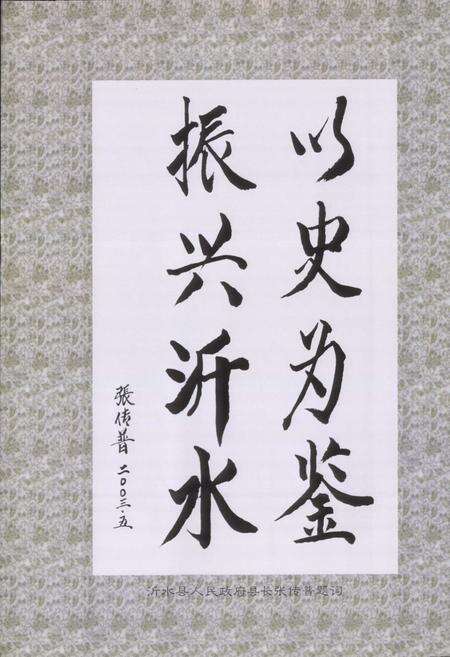 以史为鉴
振兴沂水
張传普 二〇〇三·五
沂水县人民政府县长张传普题词